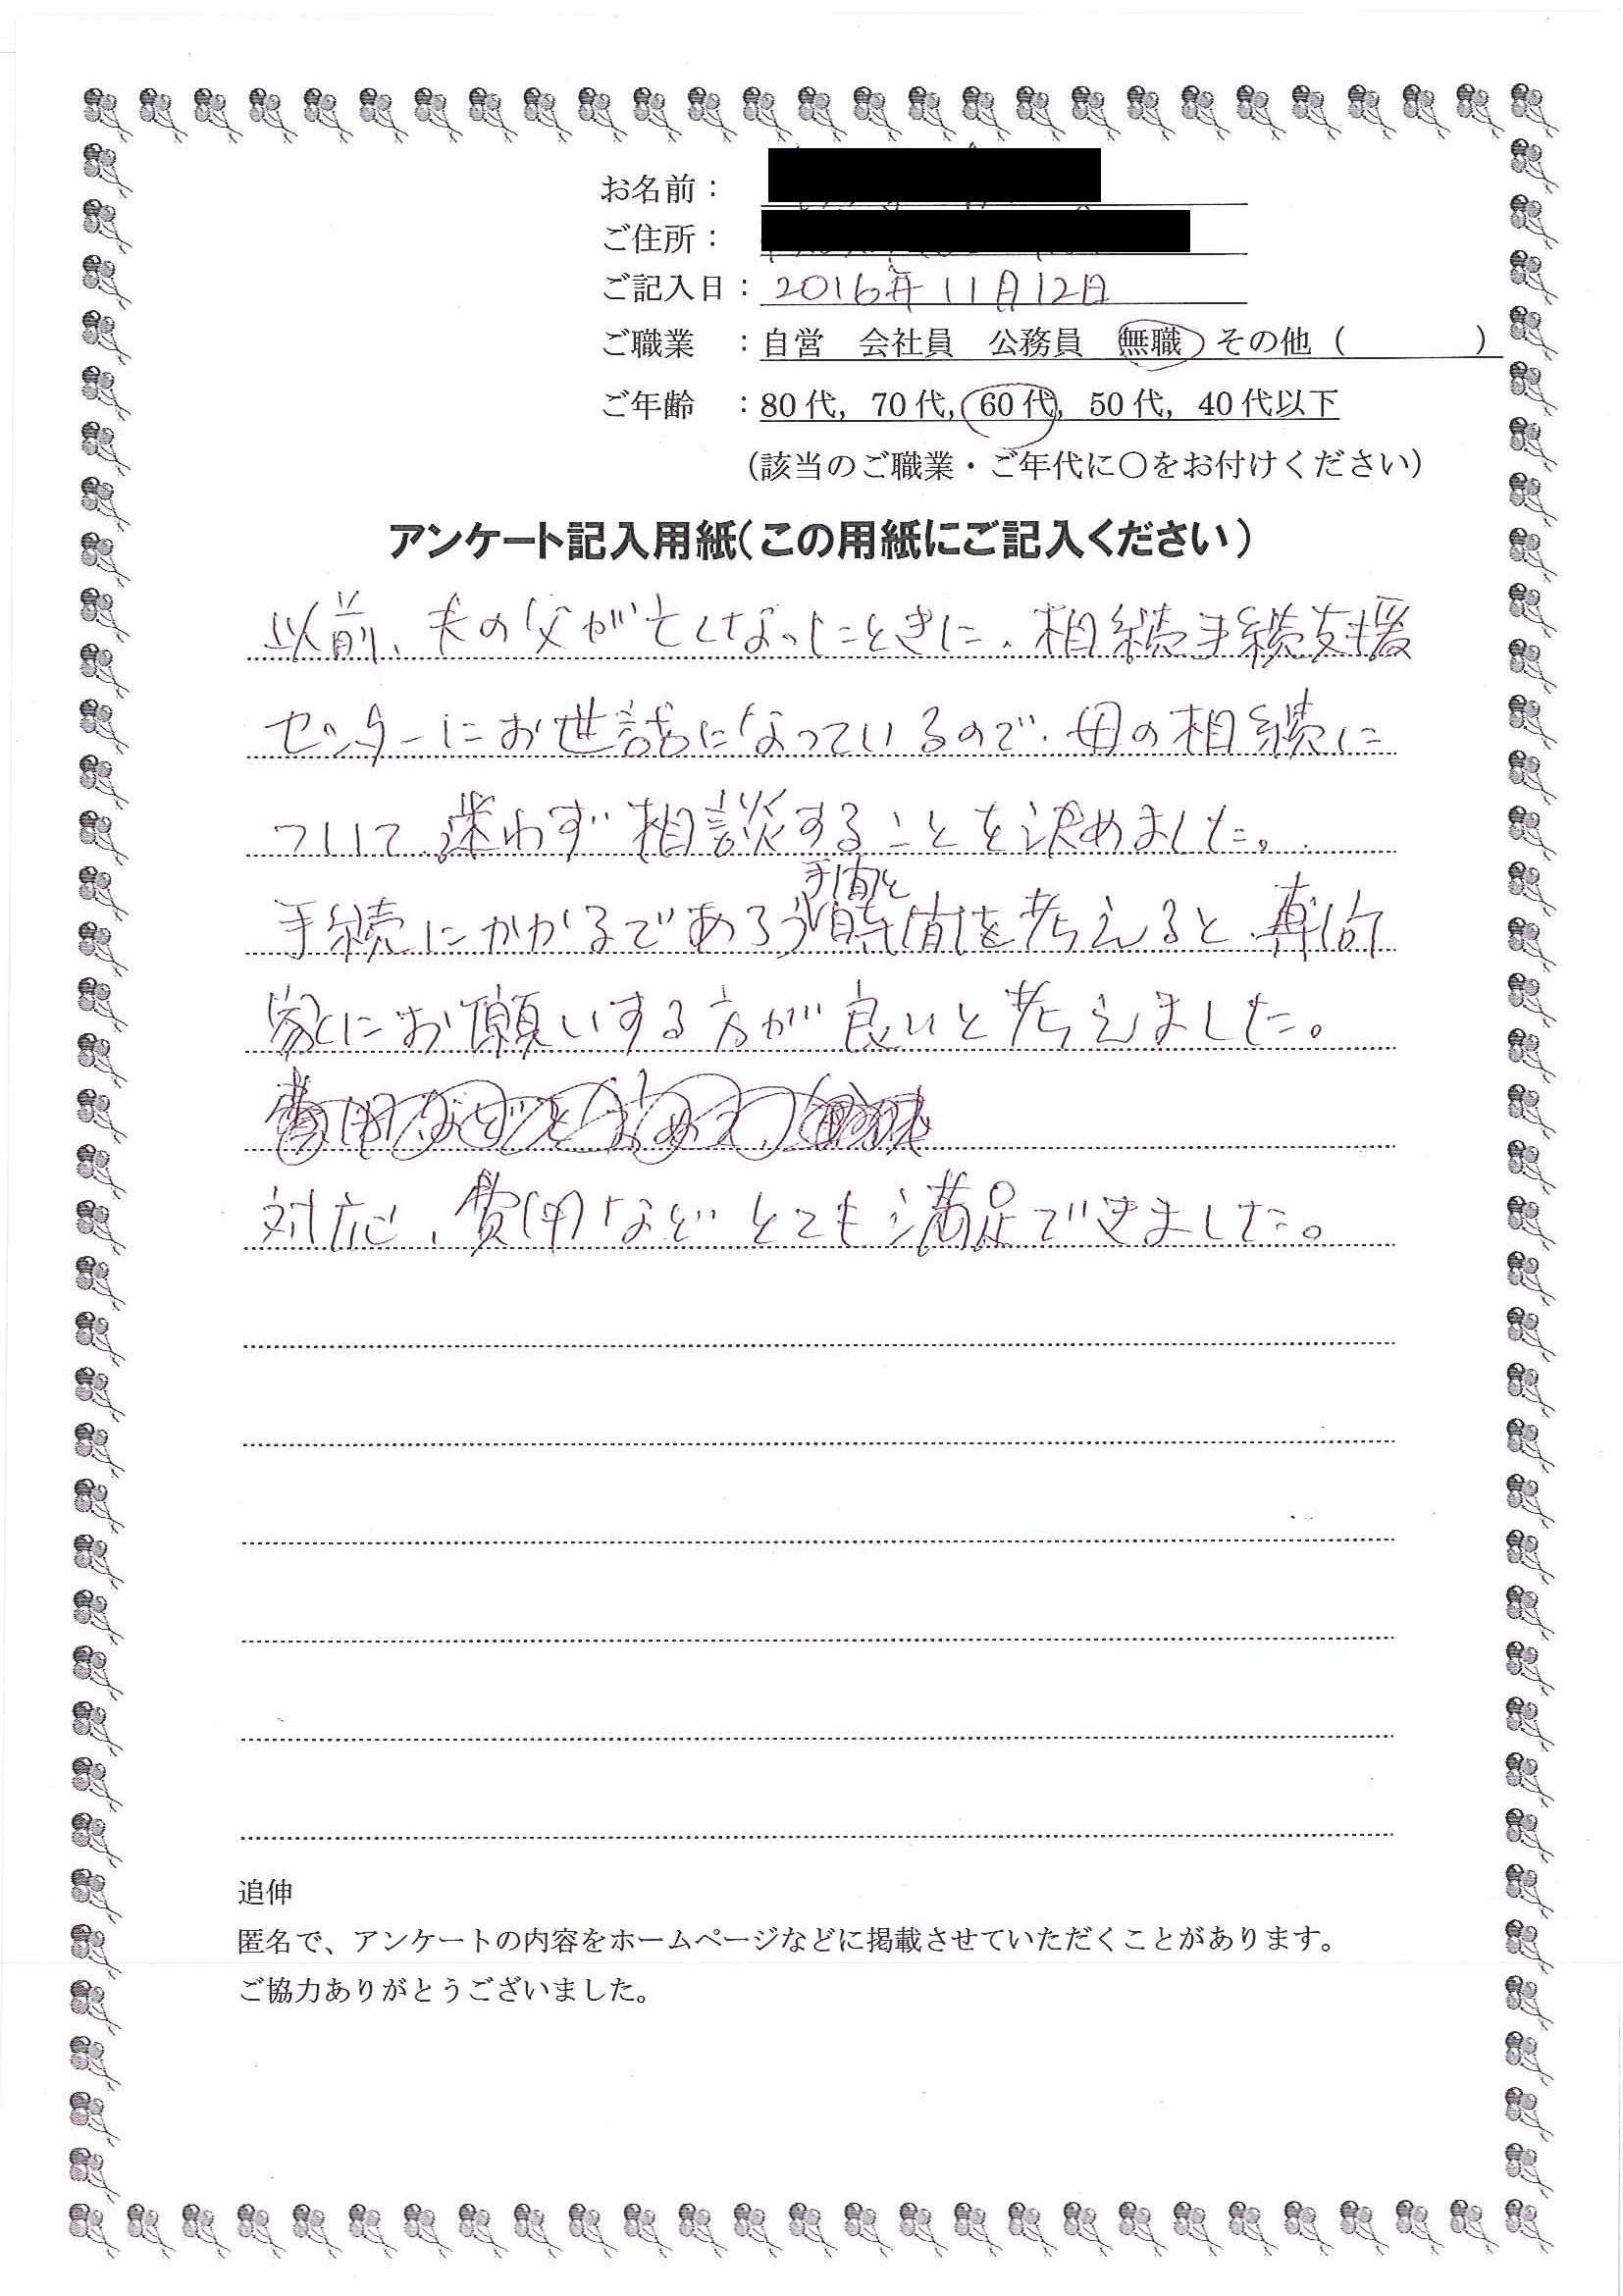 お名前：
ご住所：
ご記入日：2016年11月12日
ご職業　：自営　会社員　公務員　無職　その他（　　　　）
ご年齢　：80代，70代，60代，50代，40代以下
（該当のご職業・ご年代に〇をお付けください）
アンケート記入用紙（この用紙にご記入ください）
以前、夫の父が亡くなったときに、相続手続支援
センターにお世話になっているので、母の相続に
ついて、迷わず相談することを決めました。
手間と
手続にかかるであろう時間を考えると、専門
家にお願いする方が良いと考えました。
対応、費用などとても満足できました。
追伸
匿名で、アンケートの内容をホームページなどに掲載させていただくことがあります。
ご協力ありがとうございました。